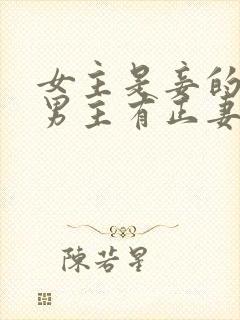 女主是妾的
男主有正妻
陳若星